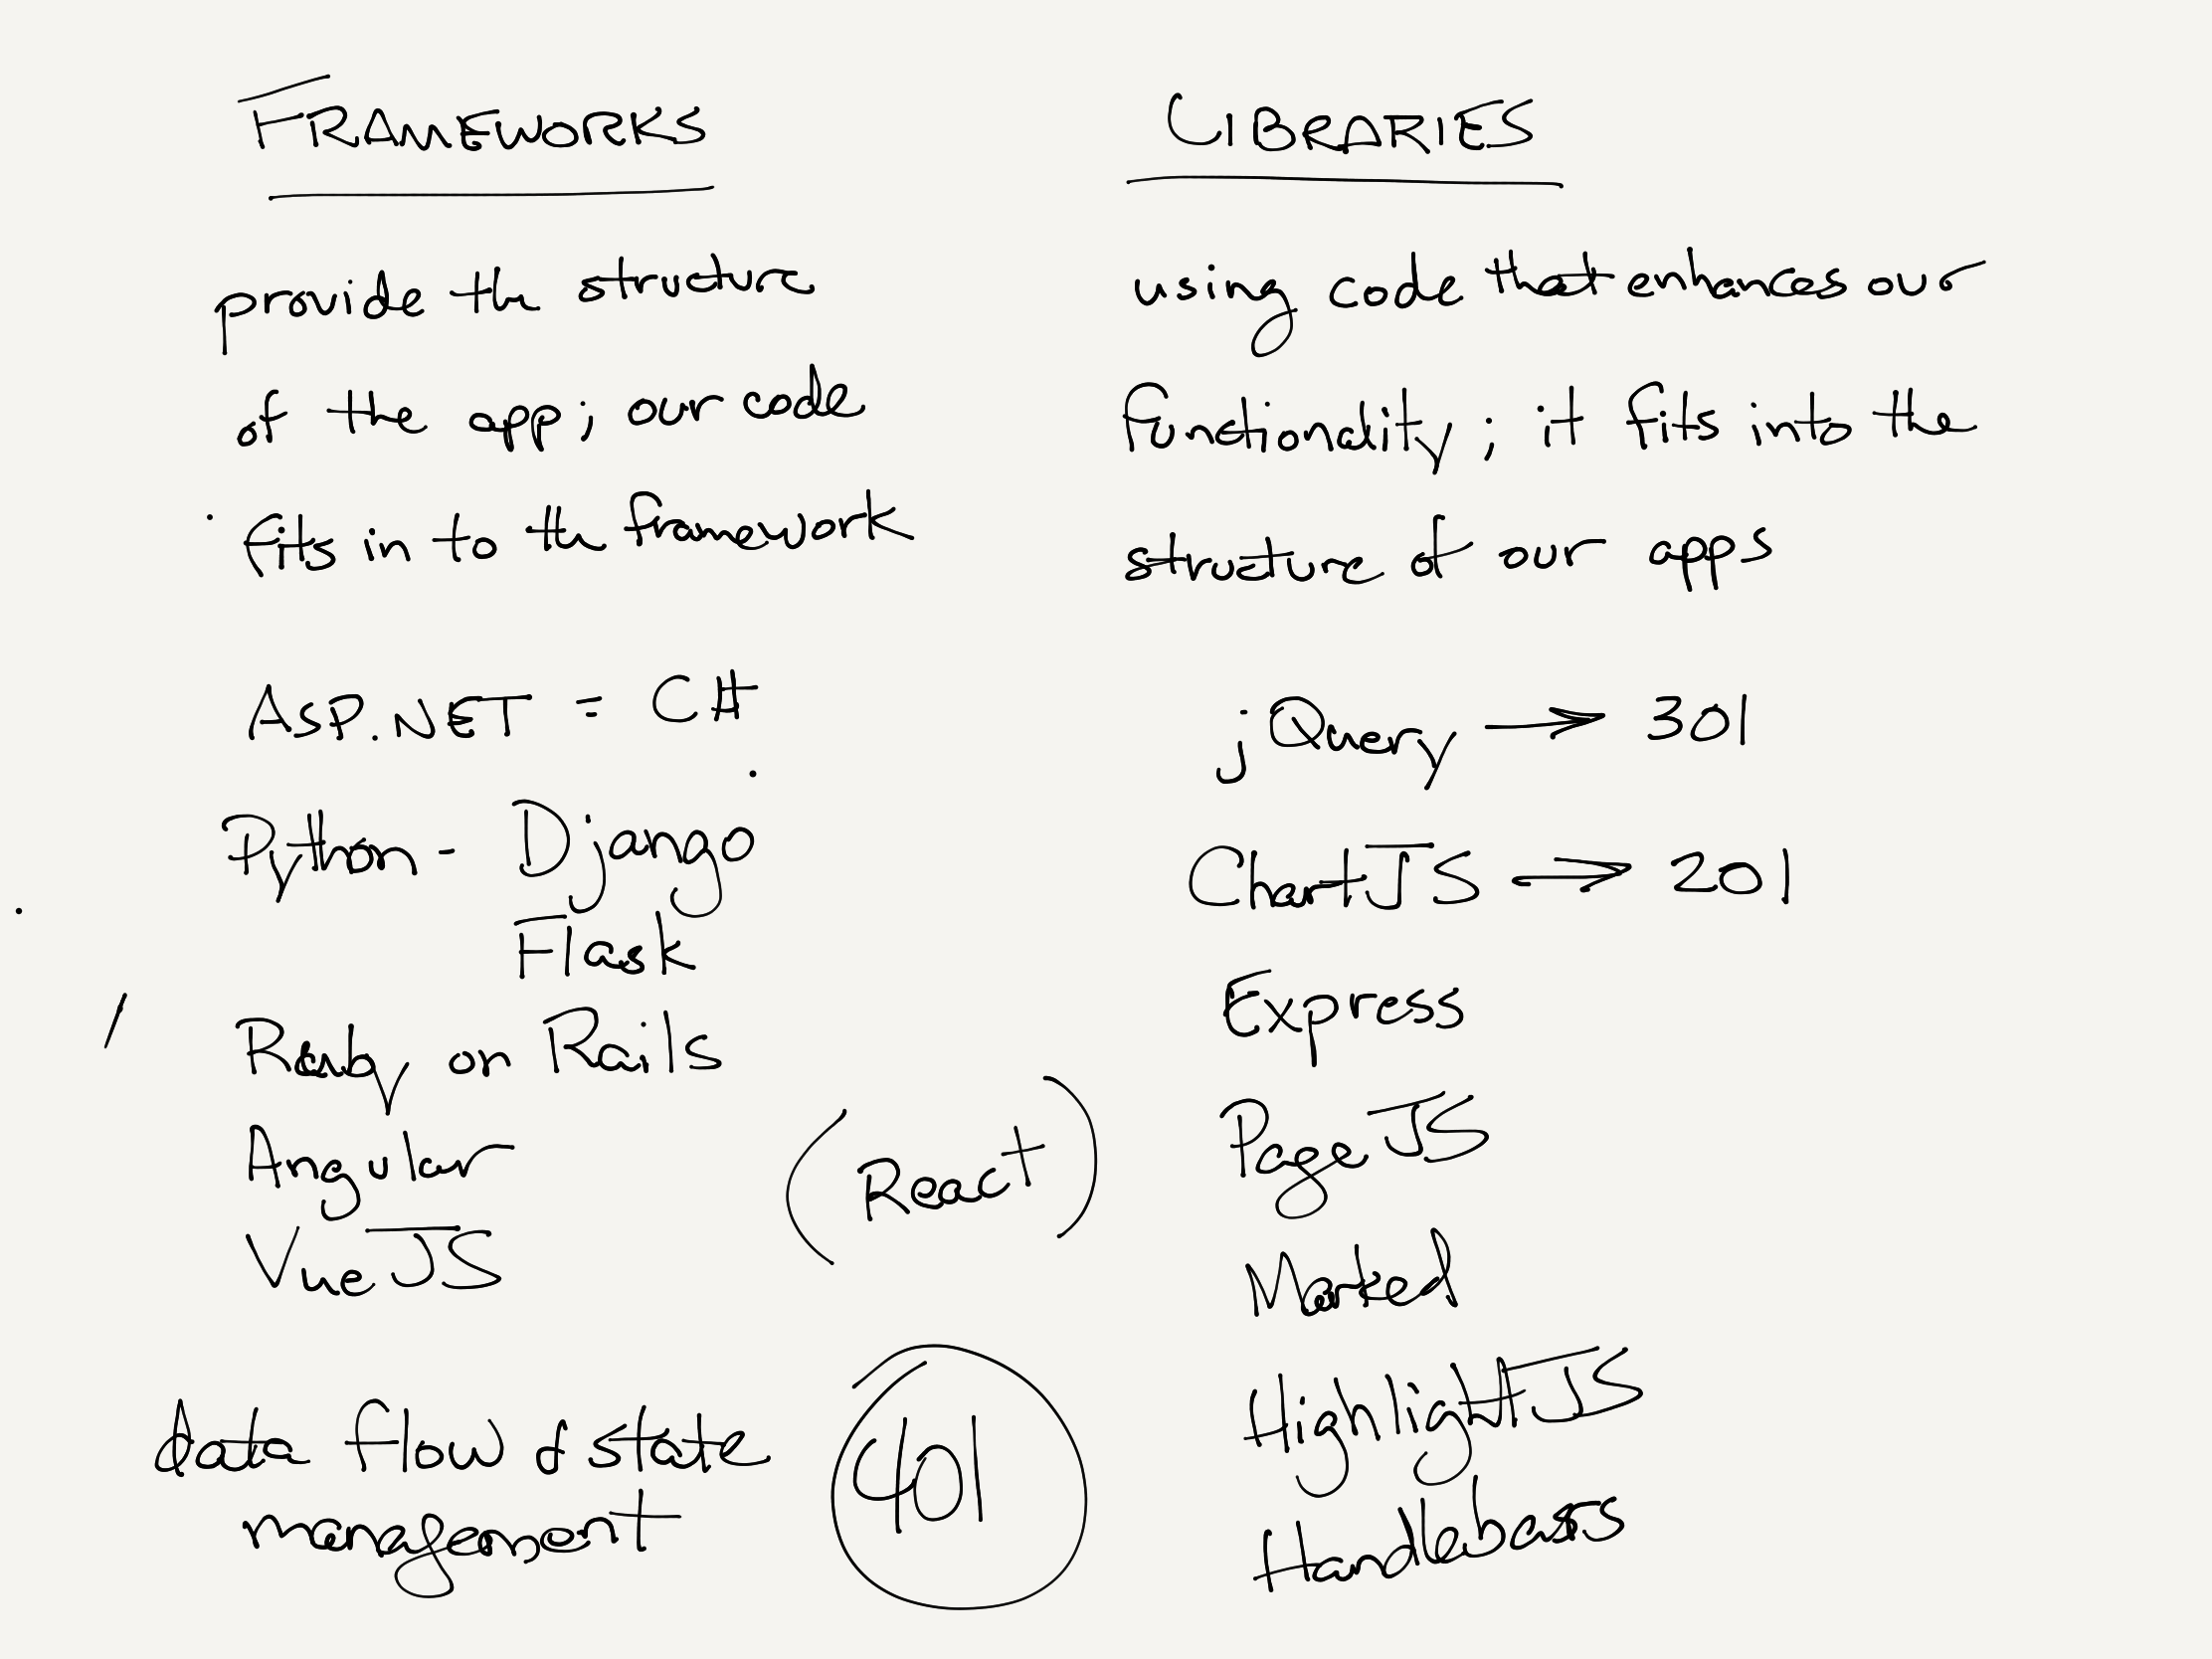 FRAMEWORKS
provide the structure
of the app; our code
fits in to the framework
ASP.NET = C#
Python - Django
Flask
Ruby on Rails
Angular
VueJS
data flow & state
management
(React)
401
LIBRARIES
using code that enhances our
functionality; it fits into the
structure of our apps
jQuery → 301
ChartJS → 201
Express
PageJS
Marked
HighlightJS
Handlebars